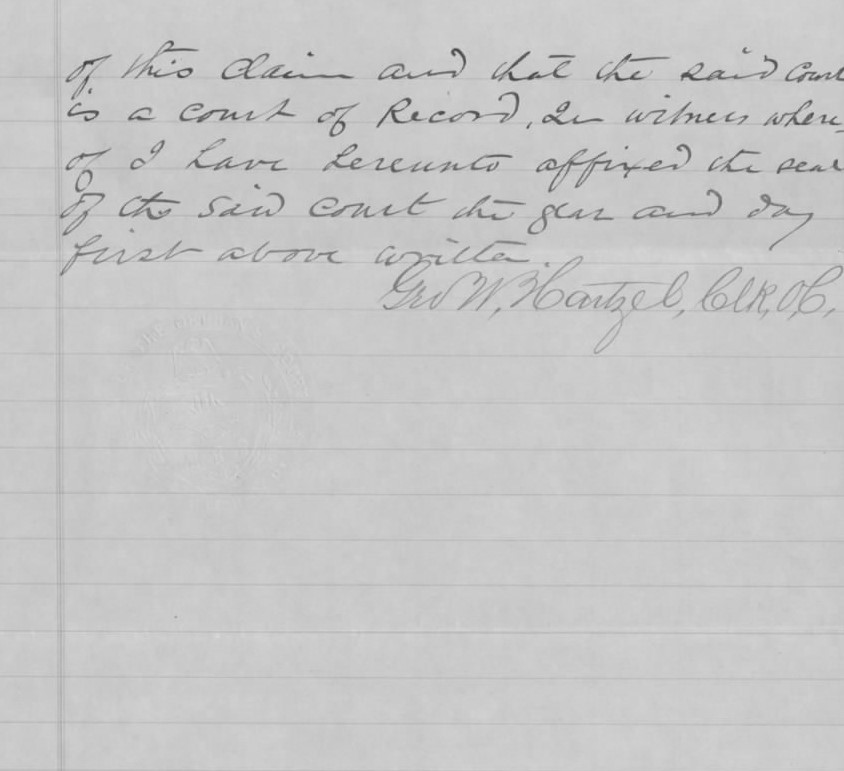 of this claim and that the said court
is a court of Record, In witness where-
of I have hereunto affixed the seal
of the said court the year and day
first above written.
Geo W. Hartzel, Clk, O, C,